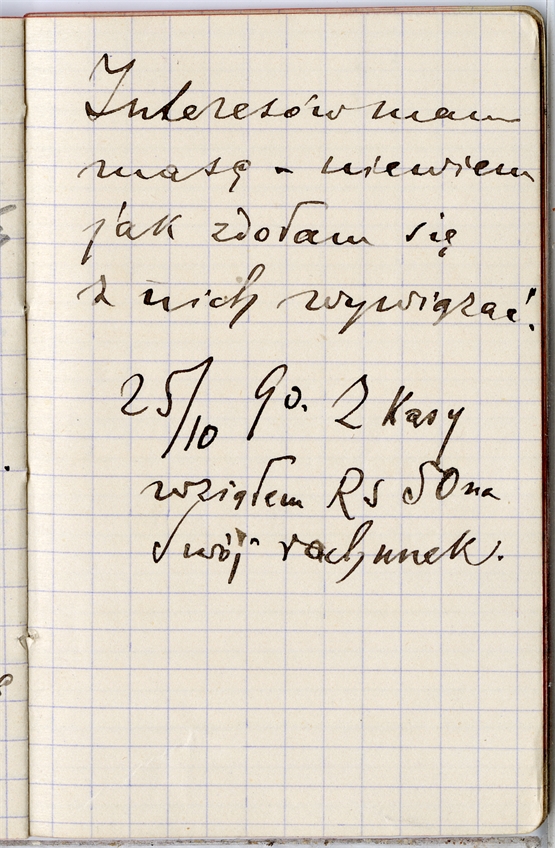 Interesów mam
masę - niewiem
jak zdołam się
z nich wywiązać.
25/10 90. Z Kasy
wziąłem Rs 50 na
swój rachunek.